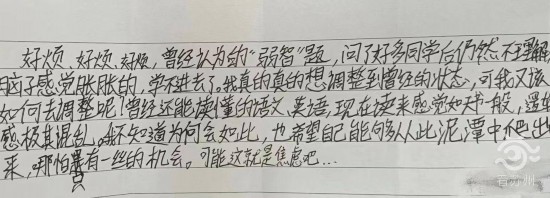 好烦、好烦、好烦，曾经认为的“弱智”题，问了好多同学后仍然不理解，
脑子感觉胀胀的，学不进去了。我真的真的想调整到曾经的状态，可我又该
如何去调整呢！曾经还能读懂的语文、英语，现在读来感觉如天书一般，逻辑
感极其混乱。我不知道为何会如此，也希望自己能够从此泥潭中爬出
来，哪怕只有一丝的机会。可能这就是焦虑吧...
看苏州